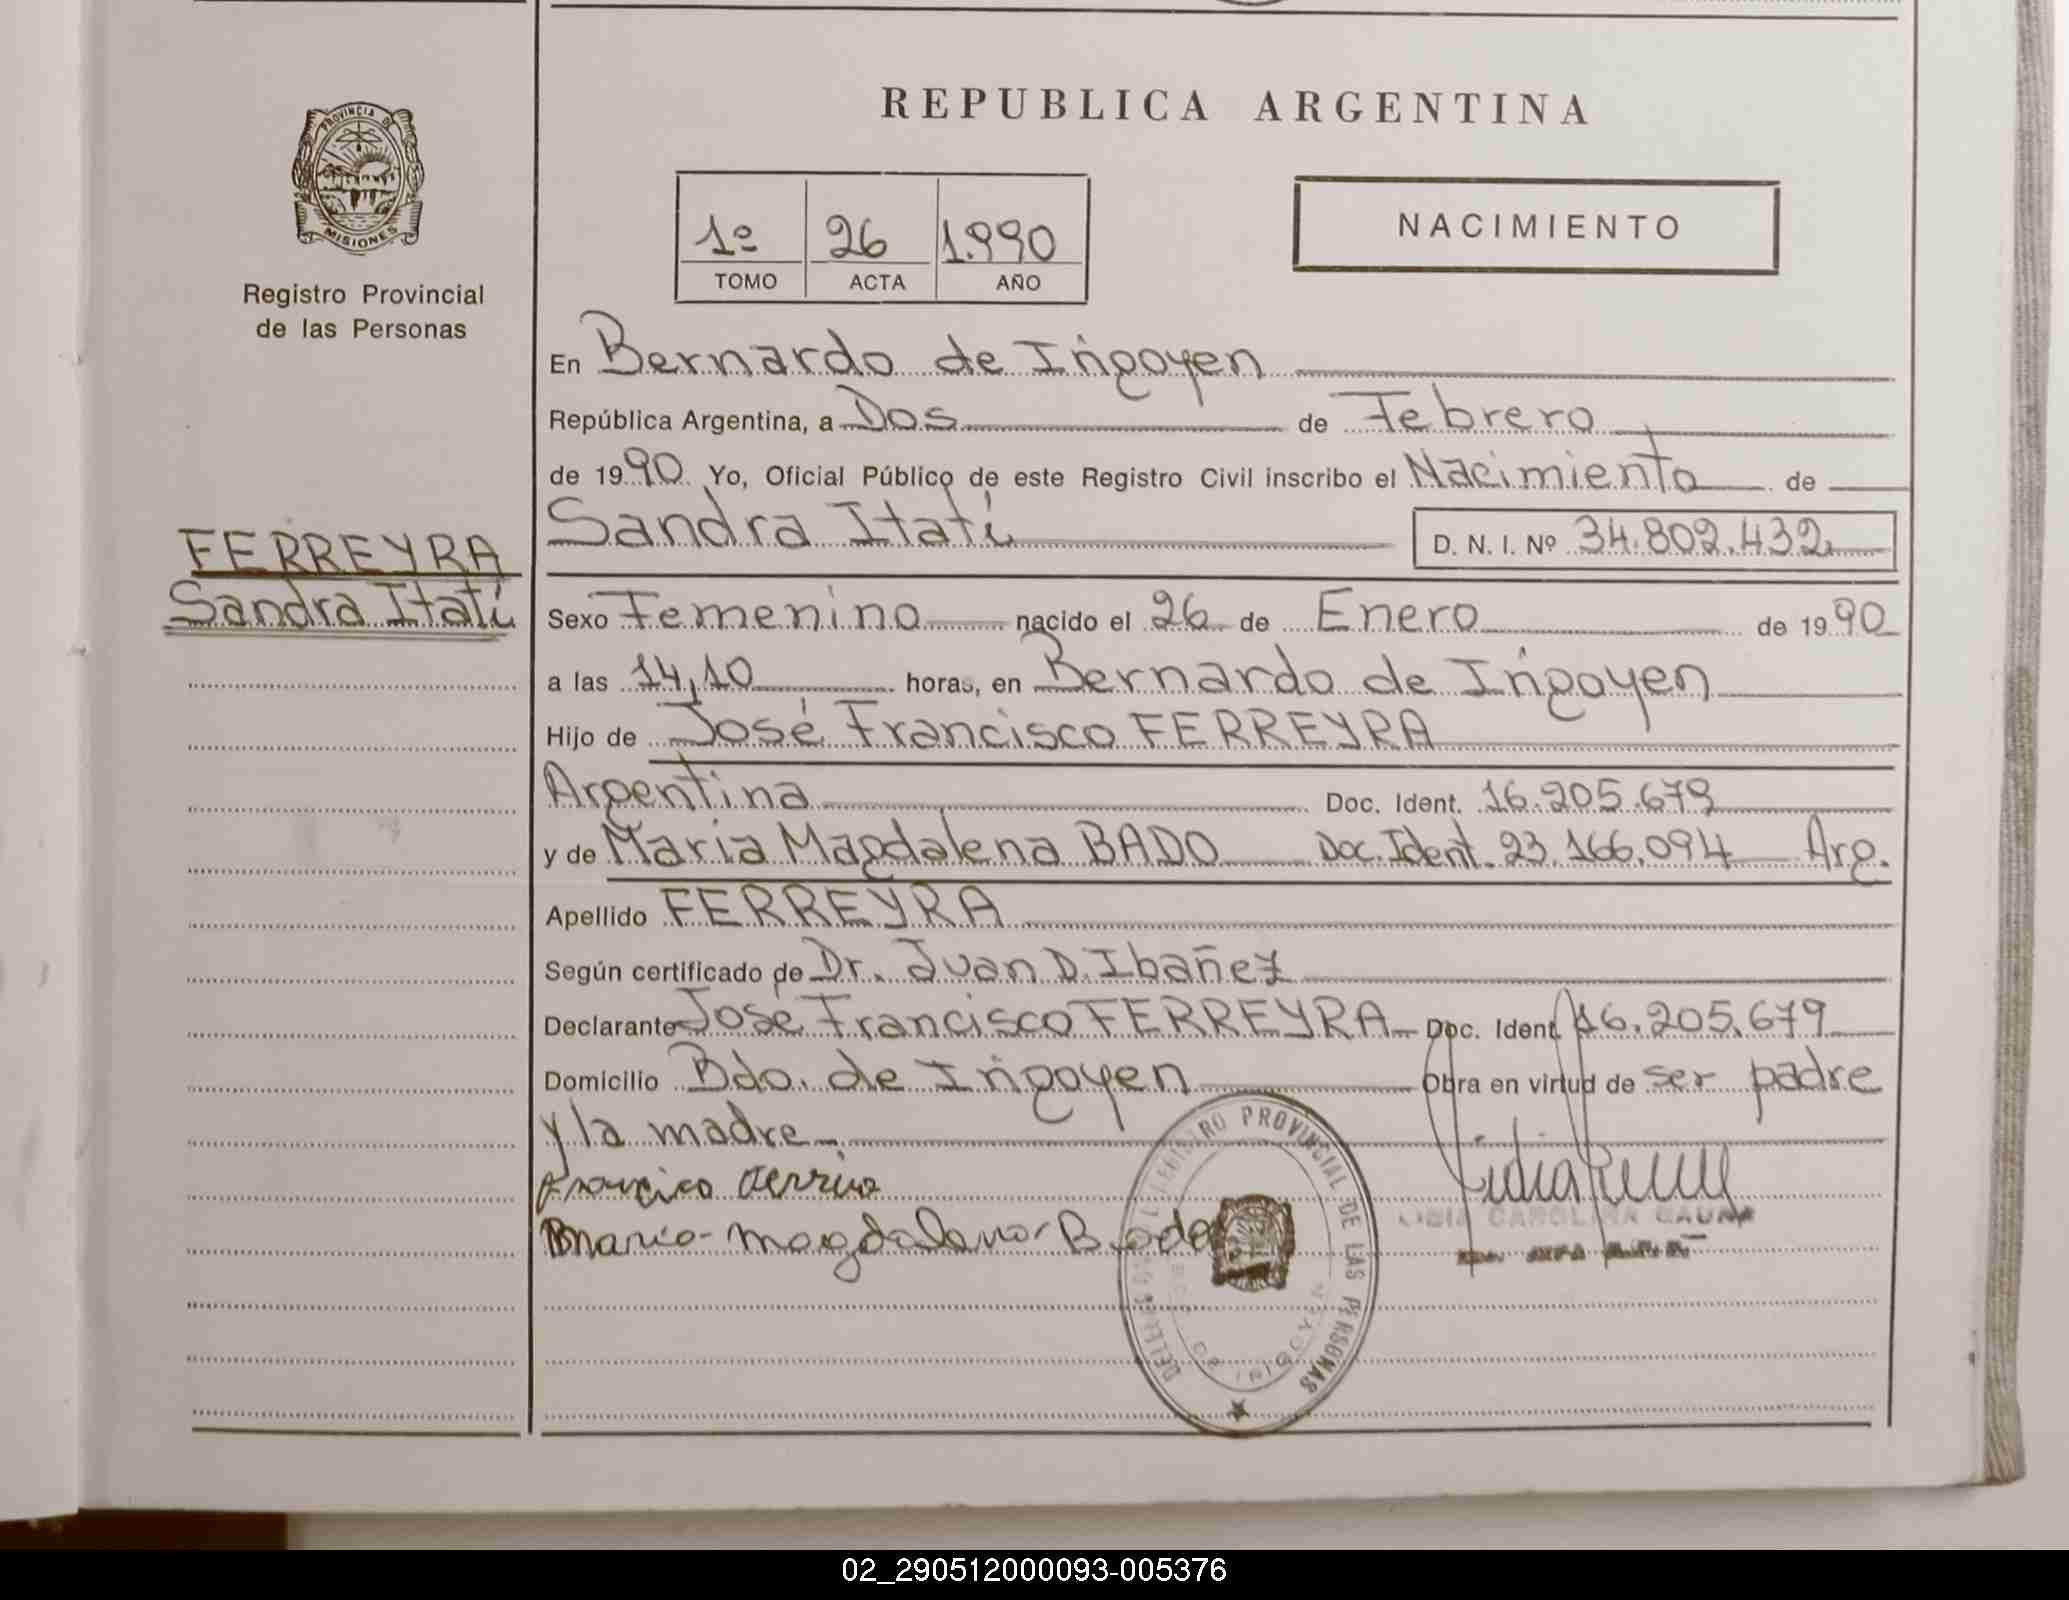 REPUBLICA ARGENTINA
PROVINCIA DE
MISIONES
Registro Provincial
de las Personas
1º 26 1.990
TOMO ACTA AÑO
NACIMIENTO
En Bernardo de Irigoyen
República Argentina, a Dos de Febrero
de 1990 Yo, Oficial Público de este Registro Civil inscribo el Nacimiento de
Sandra Itatí D. N. I. Nº 34.802.432
FERREYRA
Sandra Itatí
Sexo Femenino nacido el 26 de Enero de 1990
a las 14,10 horas, en Bernardo de Irigoyen
Hijo de José Francisco FERREYRA
Argentina Doc. Ident. 16.205.679
y de Maria Magdalena BADO Doc. Ident. 23.166.094 Arg.
Apellido FERREYRA
Según certificado de Dr. Juan D. Ibañez
Declarante José Francisco FERREYRA Doc. Ident 16.205.679
Domicilio Bdo. de Irigoyen Obra en virtud de ser padre
y la madre
REGISTRO PROVINCIAL DE LAS PERSONAS
DE IRIGOYEN
CAROLINA
02_290512000093-005376